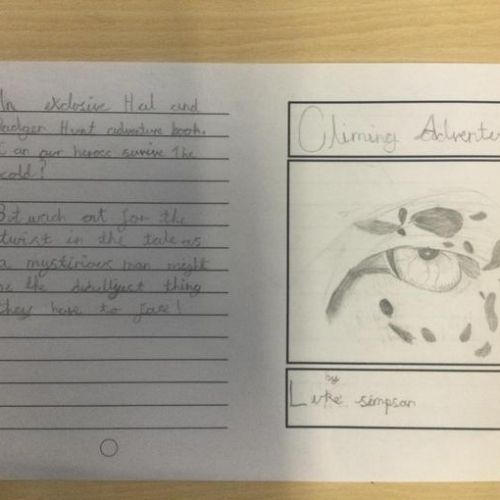 In exclosive Hal and
Badger Hunt adventure book.
Can our heroes survive the
cold?
But wach out for the
twist in the tale as
a mystirious man might
be the thing
they have to face!
Climing Adventu
by
Luke simpson